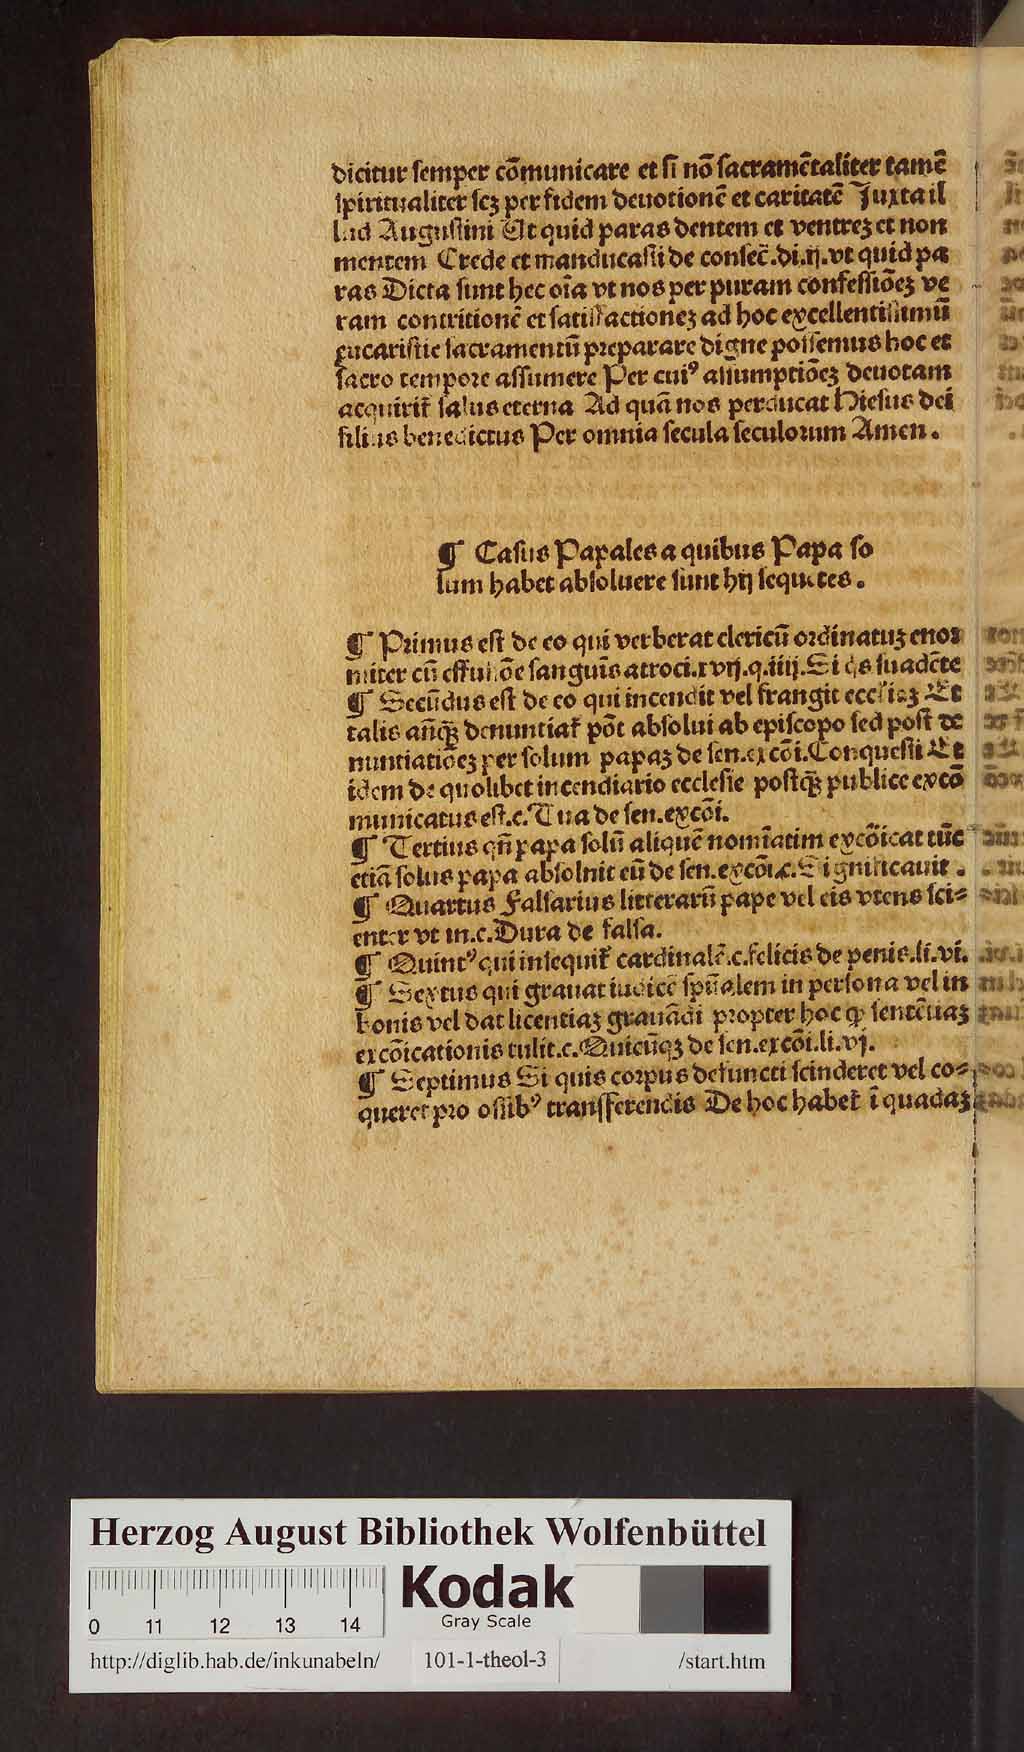 dicitur semper cōmunicare et si nō sacramētaliter tamē
spiritualiter scꝫ per fidem deuotionē et caritatē Juxta il
lud Augustini Ut quid paras dentem et ventreꝫ et non
mentem Crede et manducasti de consec̄.di.ij.vt quid pa
ras Dicta sunt hec oīa vt nos per puram confessiōeꝫ ve
ram contritionē et satisfactioneꝫ ad hoc excellentissimū
eucaristie sacramentū preparare digne possemus hoc et
sacro tempore assumere Per cuiꝰ assumptiōeꝫ deuotam
acquirit̄ salus eterna Ad quā nos perducat Hiesus dei
filius benedictus Per omnia secula seculorum Amen.
¶ Casus Papales a quibus Papa so
lum habet absoluere sunt hij sequētes.
¶ Primus est de eo qui verberat clericū ordinatuꝫ enor
miter cū effusiōe sanguīs atroci.xvij.q.iiij.Si qs suadēte
¶ Secūdus est de eo qui incendit vel frangit ecclesiaꝫ Et
talis an̄qꝫ̄ denuntiat̄ pōt absolui ab episcopo sed post de
nuntiatiōeꝫ per solum papaꝫ de sen.excōi.Conquesti Et
idem de quolibet incendiario ecclesie postqꝫ̄ publice excō
municatus est.c.Tua de sen.excōi.
¶ Tertius qn̄ papa solū aliquē nomīatim excōicat tūc
etiā solus papa absoluit eū de sen.excōi.c.Significauit.
¶ Quartus Falsarius litterarū pape vel eis vtens sci=
enter vt in.c.Dura de falsa.
¶ Quintꝰ qui insequit̄ cardinalē.c.felicis de penis.li.vi.
¶ Sextus qui grauat iudicē spūalem in persona vel in
bonis vel dat licentiaꝫ grauādi propter hoc ꝙ sentētiaꝫ
excōicationis tulit.c.Quicūqꝫ de sen.excōi.li.vj.
¶ Septimus Si quis corpus defuncti scinderet vel co=
queret pro ossibꝰ transferendis De hoc habet̄ ī quadaꝫ
Herzog August Bibliothek Wolfenbüttel
Kodak
Gray Scale
0 11 12 13 14
http://diglib.hab.de/inkunabeln/ 101-1-theol-3 /start.htm